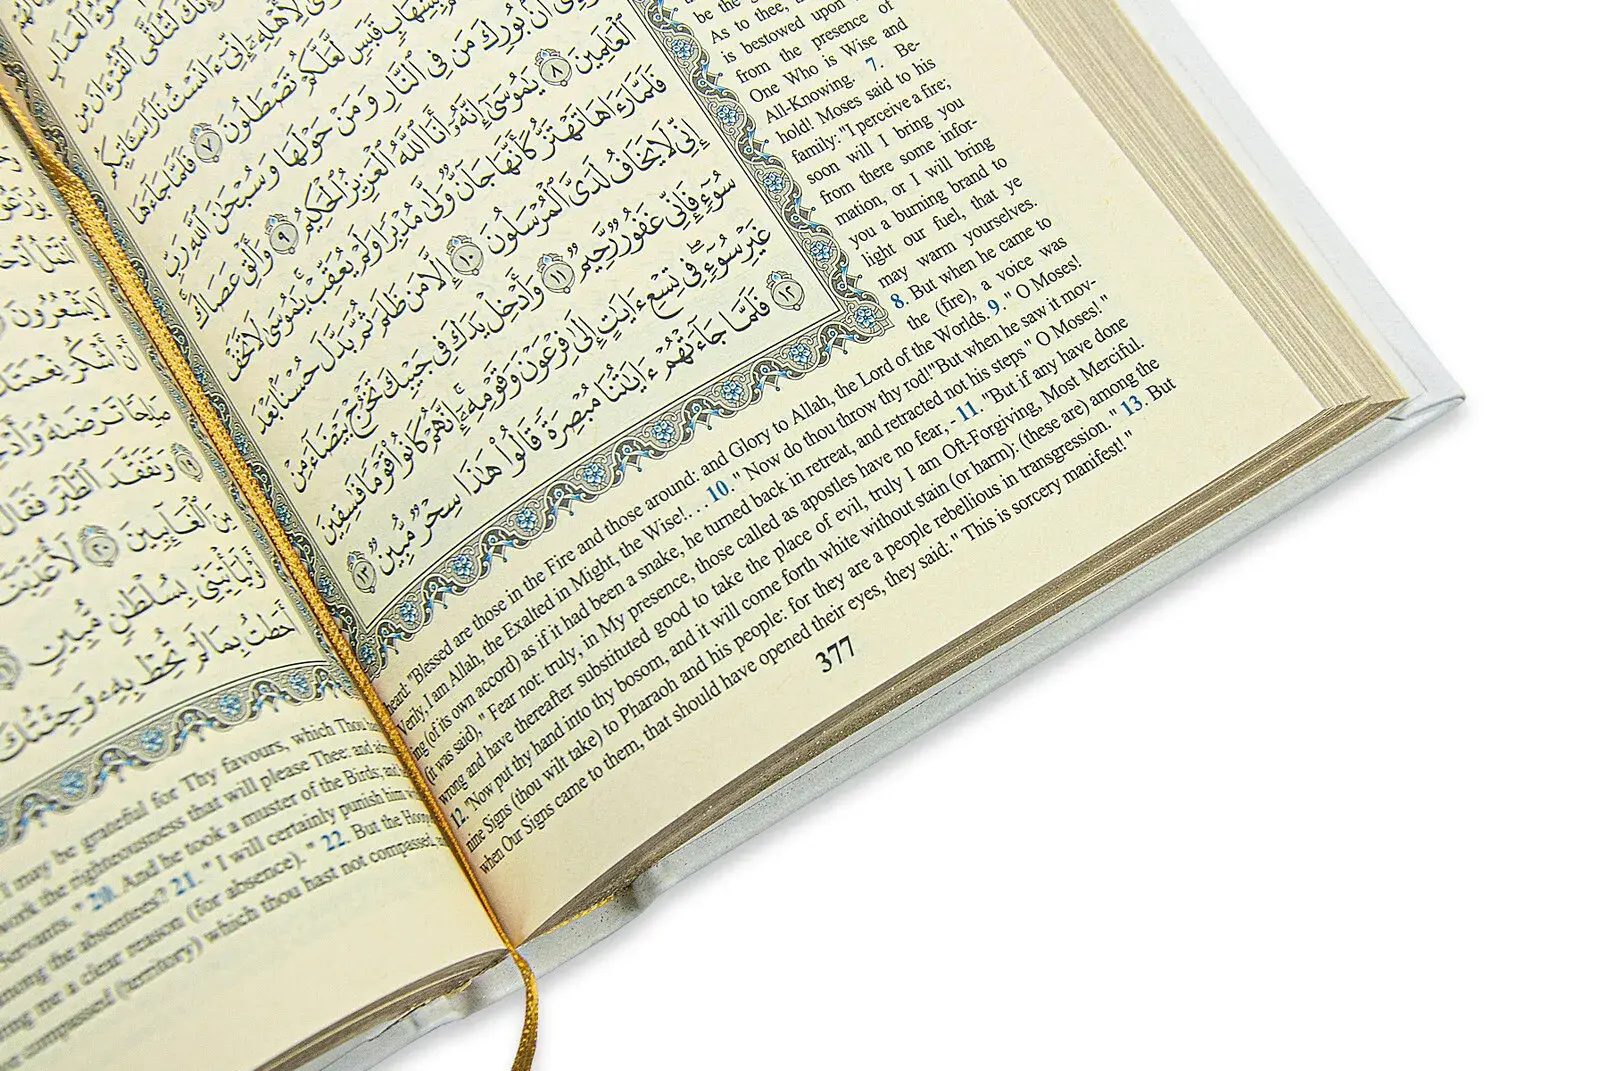 ٱلْعَذَابِ
لَتُلَقَّى ٱلْقُرْءَانَ مِن
لِأَهْلِهِۦٓ إِنِّىٓ ءَانَسْتُ نَارًا سَـَٔاتِيكُم
بِشِهَابٍ قَبَسٍ لَّعَلَّكُمْ تَصْطَلُونَ ٧ فَلَمَّا جَآءَهَا
أَنۢ بُورِكَ مَن فِى ٱلنَّارِ وَمَنْ حَوْلَهَا وَسُبْحَٰنَ ٱللَّهِ رَبِّ
ٱلْعَٰلَمِينَ ٨ يَٰمُوسَىٰٓ إِنَّهُۥٓ أَنَا ٱللَّهُ ٱلْعَزِيزُ ٱلْحَكِيمُ ٩ وَأَلْقِ عَصَاكَ
فَلَمَّا رَءَاهَا تَهْتَزُّ كَأَنَّهَا جَآنٌّ وَلَّىٰ مُدْبِرًا وَلَمْ يُعَقِّبْ يَٰمُوسَىٰ لَا تَخَفْ
إِنِّى لَا يَخَافُ لَدَىَّ ٱلْمُرْسَلُونَ ١٠ إِلَّا مَن ظَلَمَ ثُمَّ بَدَّلَ حُسْنًۢا بَعْدَ
سُوٓءٍ فَإِنِّى غَفُورٌ رَّحِيمٌ ١١ وَأَدْخِلْ يَدَكَ فِى جَيْبِكَ تَخْرُجْ بَيْضَآءَ مِنْ
غَيْرِ سُوٓءٍ ۖ فِى تِسْعِ ءَايَٰتٍ إِلَىٰ فِرْعَوْنَ وَقَوْمِهِۦٓ ۚ إِنَّهُمْ كَانُوا۟ قَوْمًا فَٰسِقِينَ
١٢ فَلَمَّا جَآءَتْهُمْ ءَايَٰتُنَا مُبْصِرَةً قَالُوا۟ هَٰذَا سِحْرٌ مُّبِينٌ ١٣
be the
As to thee,
is bestowed upon
from the presence of
One Who is Wise and
All-Knowing. 7. Be-
hold! Moses said to his
family: "I perceive a fire;
soon will I bring you
from there some infor-
mation, or I will bring
you a burning brand to
light our fuel, that ye
may warm yourselves.
8. But when he came to
the (fire), a voice was
heard: "Blessed are those in the Fire and those around: and Glory to Allah, the Lord of the Worlds. 9. " O Moses!
Verily, I am Allah, the Exalted in Might, the Wise!. . . 10. " Now do thou throw thy rod!"But when he saw it mov-
ing (of its own accord) as if it had been a snake, he turned back in retreat, and retracted not his steps " O Moses! "
(it was said), " Fear not: truly, in My presence, those called as apostles have no fear, - 11. "But if any have done
wrong and have thereafter substituted good to take the place of evil, truly I am Oft-Forgiving, Most Merciful.
12. "Now put thy hand into thy bosom, and it will come forth white without stain (or harm): (these are) among the
nine Signs (thou wilt take) to Pharaoh and his people: for they are a people rebellious in transgression. " 13. But
when Our Signs came to them, that should have opened their eyes, they said: " This is sorcery manifest! "
377
لَا يَشْعُرُونَ
أَنْ أَشْكُرَ نِعْمَتَكَ
صَٰلِحًا تَرْضَىٰهُ
١٩ وَتَفَقَّدَ ٱلطَّيْرَ فَقَالَ
مِنَ ٱلْغَآئِبِينَ ٢٠ لَأُعَذِّبَنَّهُۥ
أَوْ لَيَأْتِيَنِّى بِسُلْطَٰنٍ مُّبِينٍ
أَحَطتُ بِمَا لَمْ تُحِطْ بِهِۦ وَجِئْتُكَ
I may be grateful for Thy favours, which Thou
work the righteousness that will please Thee: and
Servants. " 20. And he took a muster of the Birds; and
among the absentees? 21. " I will certainly punish him
me a clear reason (for absence). " 22. But the
compassed (territory) which thou hast not compassed,